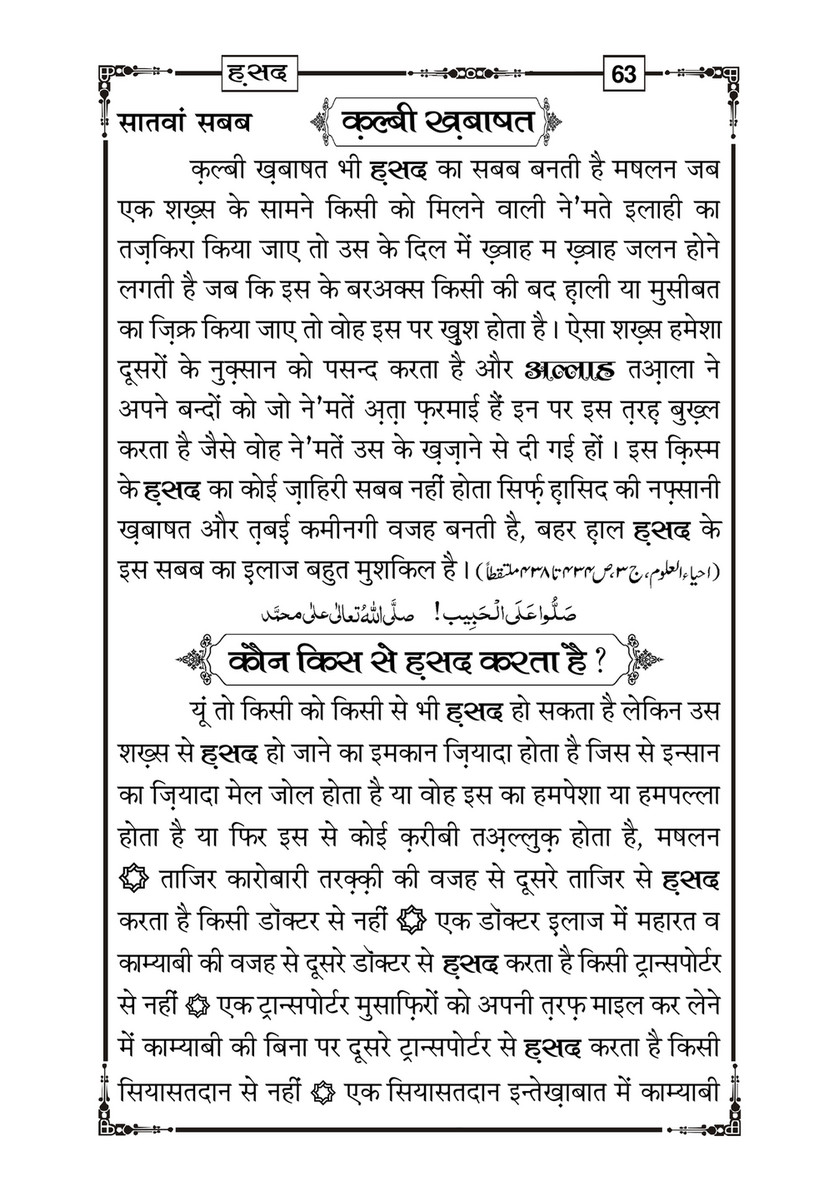 ह़सद
63
सातवां सबब
क़ल्बी ख़बाषत
क़ल्बी ख़बाषत भी ह़सद का सबब बनती है मषलन जब
एक शख़्स के सामने किसी को मिलने वाली ने'मते इलाही का
तज़किरा किया जाए तो उस के दिल में ख़्वाह म ख़्वाह जलन होने
लगती है जब कि इस के बरअक्स किसी की बद ह़ाली या मुसीबत
का ज़िक्र किया जाए तो वोह इस पर खुश होता है। ऐसा शख़्स हमेशा
दूसरों के नुक़्सान को पसन्द करता है और अल्लाह तआ़ला ने
अपने बन्दों को जो ने'मतें अ़त़ा फ़रमाई हैं इन पर इस त़रह़ बुख़्ल
करता है जैसे वोह ने'मतें उस के ख़ज़ाने से दी गई हों। इस क़िस्म
के ह़सद का कोई ज़ाहिरी सबब नहीं होता सिर्फ़ ह़ासिद की नफ़्सानी
ख़बाषत और त़बई कमीनगी वजह बनती है, बहर ह़ाल ह़सद के
इस सबब का इलाज बहुत मुशकिल है। (احیاء العلوم، ج۳، ص۴۳۴ تا ۴۳۸ ملتقطاً)
صَلُّوا عَلَی الْحَبِیب! صلَّی اللّٰهُ تعالٰی علٰی محمَّد
कौन किस से ह़सद करता है ?
यूं तो किसी को किसी से भी ह़सद हो सकता है लेकिन उस
शख़्स से ह़सद हो जाने का इमकान ज़ियादा होता है जिस से इन्सान
का ज़ियादा मेल जोल होता है या वोह इस का हमपेशा या हमपल्ला
होता है या फिर इस से कोई क़रीबी तअ़ल्लुक़ होता है, मषलन
۞ ताजिर कारोबारी तरक़्क़ी की वजह से दूसरे ताजिर से ह़सद
करता है किसी डॉक्टर से नहीं ۞ एक डॉक्टर इ़लाज में महारत व
काम्याबी की वजह से दूसरे डॉक्टर से ह़सद करता है किसी ट्रान्सपोर्टर
से नहीं ۞ एक ट्रान्सपोर्टर मुसाफ़िरों को अपनी त़रफ़ माइल कर लेने
में काम्याबी की बिना पर दूसरे ट्रान्सपोर्टर से ह़सद करता है किसी
सियासतदान से नहीं ۞ एक सियासतदान इन्तेख़ाबात में काम्याबी